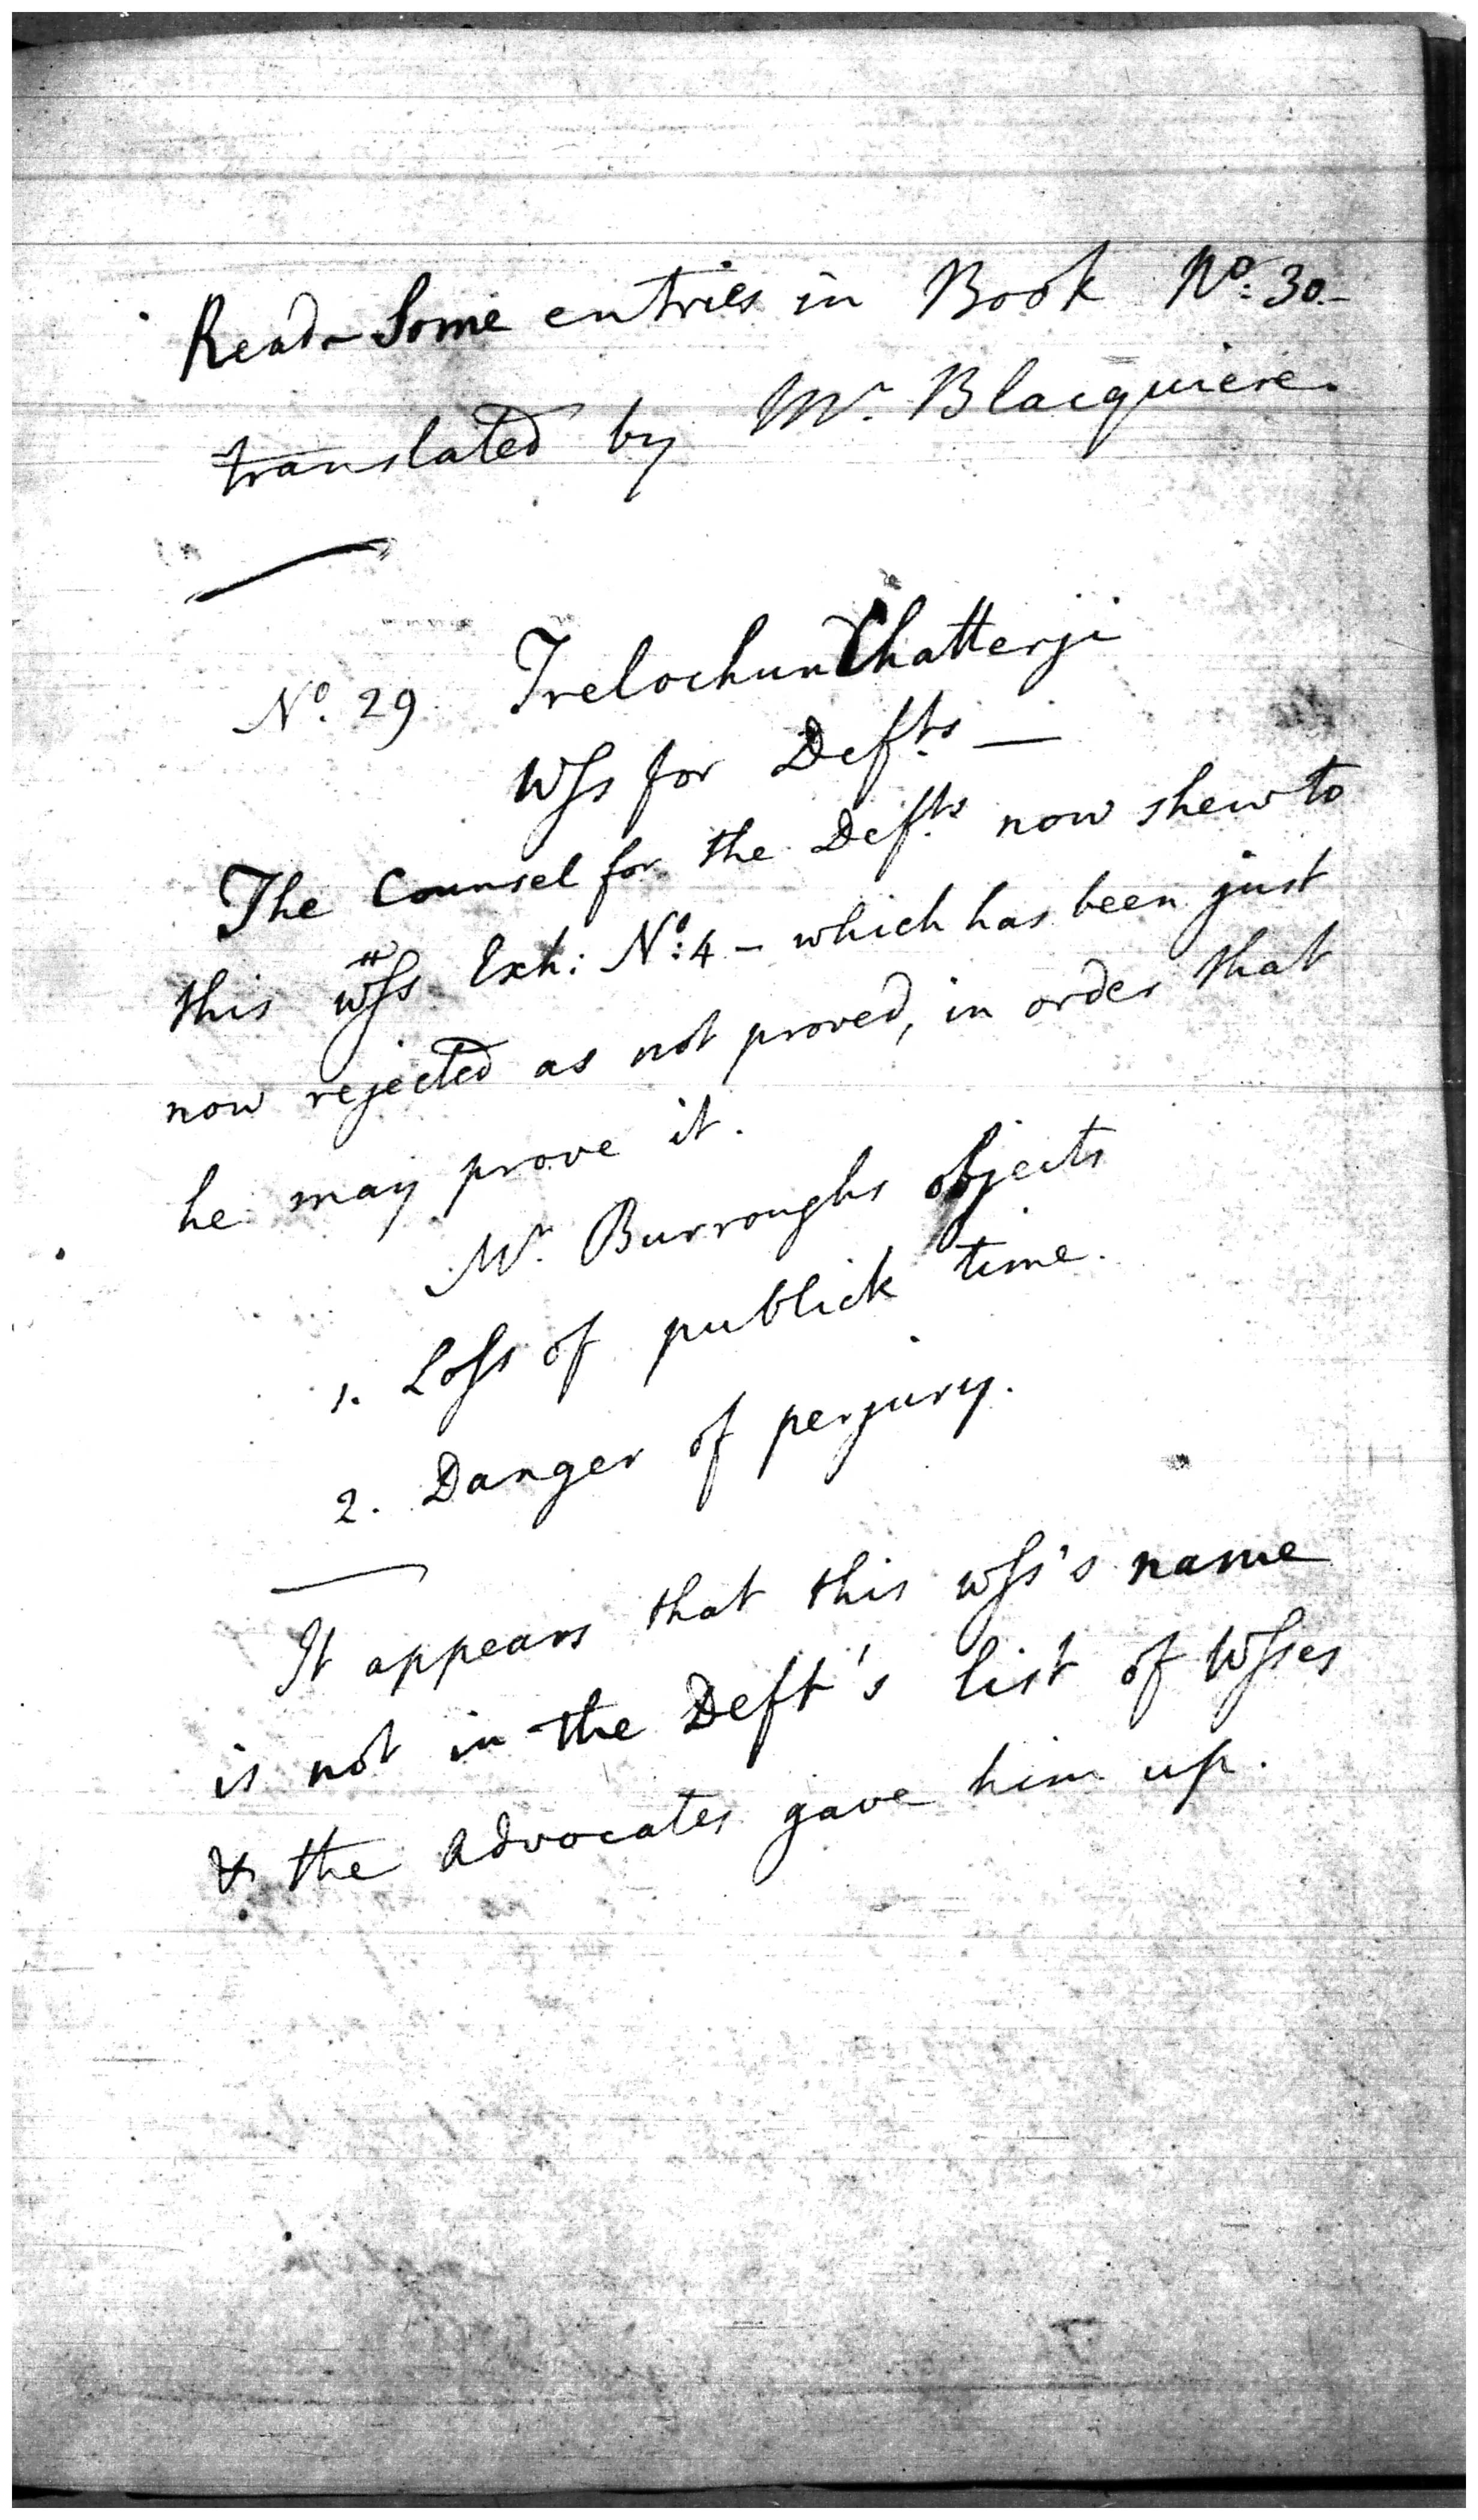 Read - Some entries in Book No. 30. -
translated by Mr. Blacquiere.
No. 29 Trelochun Chatterji
Wſs for Defts. —
The Counsel for the Defts. now shew to
this wſs Exh: No: 4 - which has been just
now rejected as not proved, in order that
he may prove it.
Mr. Burroughs objects
1. Loſs of publick time.
2. Danger of perjury.
It appears that this wſs's name
is not in the Deft's list of Wſses
& the Advocates gave him up.